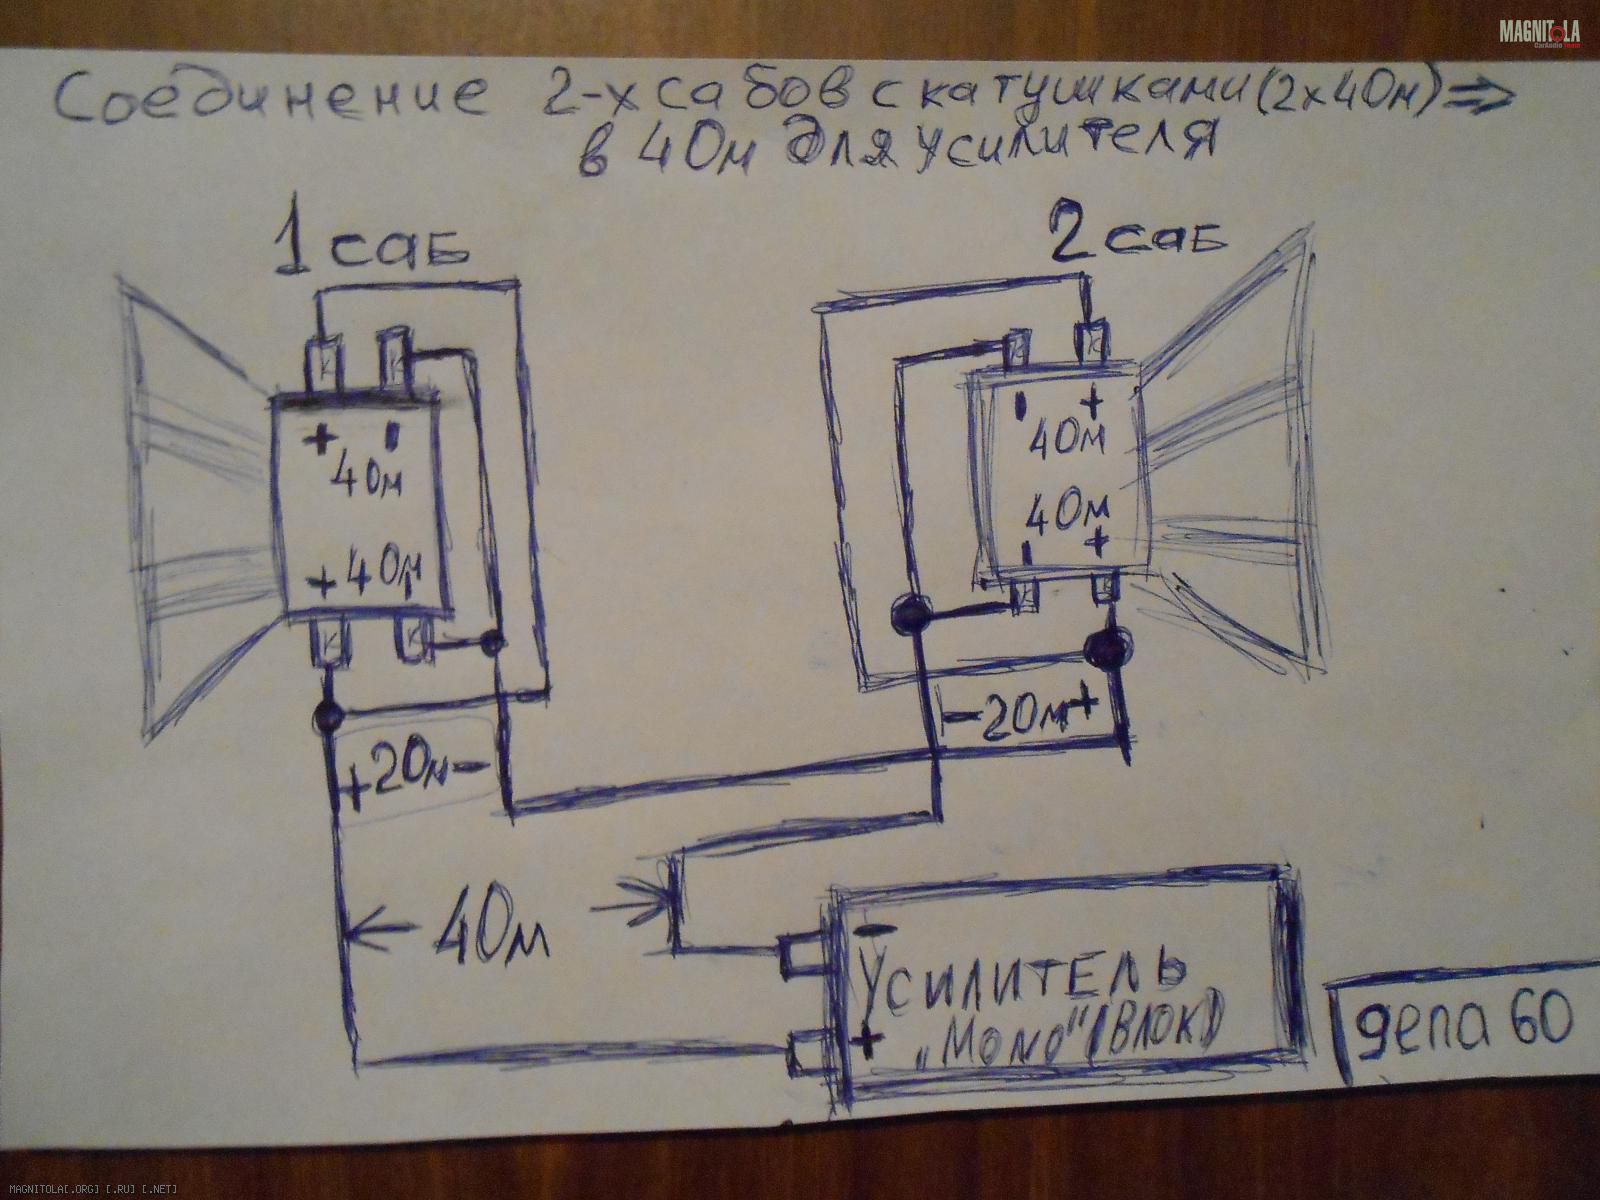 MAGNITOLA
CarAudio Team
Соединение 2-х сабов с катушками (2x4Ом) ⇒
в 4Ом для усилителя
1 саб
2 саб
К К
К К
+ -
4Ом
+ 4Ом
К К
- +
4Ом
4Ом
- +
К К
+2Ом-
-2Ом+
← 4Ом →
-
Усилитель
+ „Mono" (Блок)
депа 60
MAGNITOLA[.ORG] [.RU] [.NET]